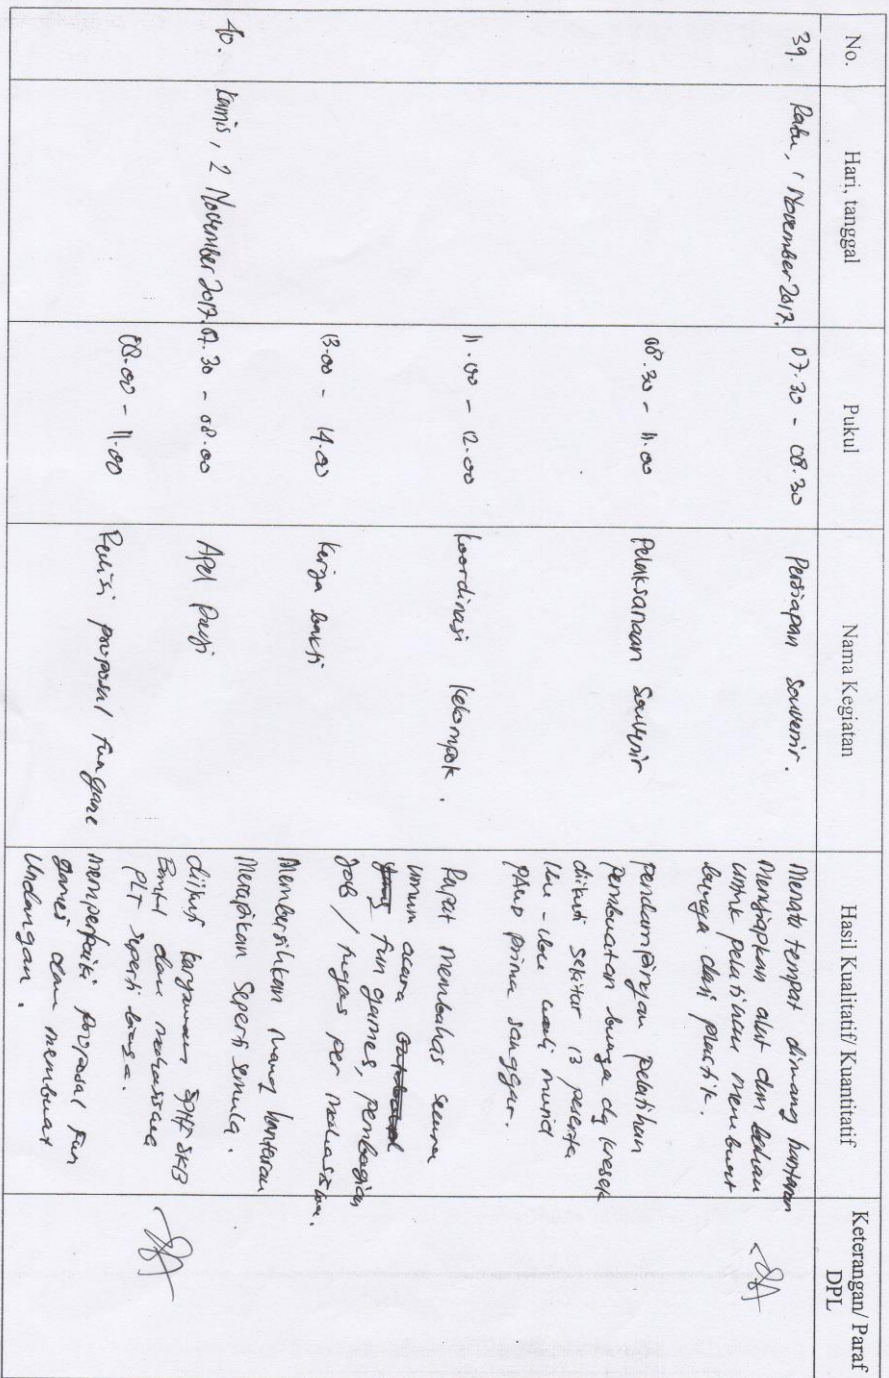 No.
Hari, tanggal
Pukul
Nama Kegiatan
Hasil Kualitatif/ Kuantitatif
Keterangan/ Paraf
DPL
39.
Rabu, 1 November 2017.
07.30 - 08.30
Persiapan Souvenir.
Menata tempat diruang hantaran
Menyiapkan alat dan bahan
untuk pelatihan membuat
bunga dari plastik.
08.30 - 11.00
Pelaksanaan Souvenir
pendampingan pelatihan
pembuatan bunga dg kresek
diikuti sekitar 13 peserta
Ibu - ibu wali murid
PAUD prima sanggar.
11.00 - 12.00
Koordinasi Kelompok.
Rapat membahas secara
umum acara
fun games, pembagian
job / tugas per mahasiswa.
13.00 - 14.00
Kerja bakti
Membersihkan ruang hantaran
Merapikan seperti semula.
40.
Kamis, 2 November 2017.
07.30 - 08.00
Apel pagi
diikuti karyawan SKB
dan mahasiswa
PLT seperti biasa.
08.00 - 11.00
Revisi proposal fun game
memperbaiki proposal fun
games dan membuat
Undangan.